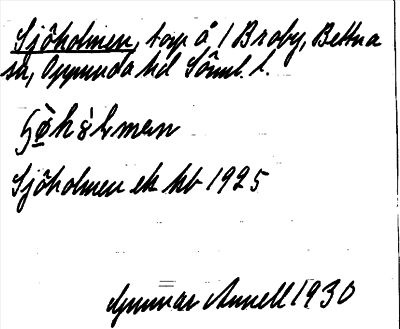 Sjöholmen, torp å 1 Broby, Bettna
sn, Oppunda hd Söml. l.
Sjöholmen ek kb 1925
Gunnar Annell 1930